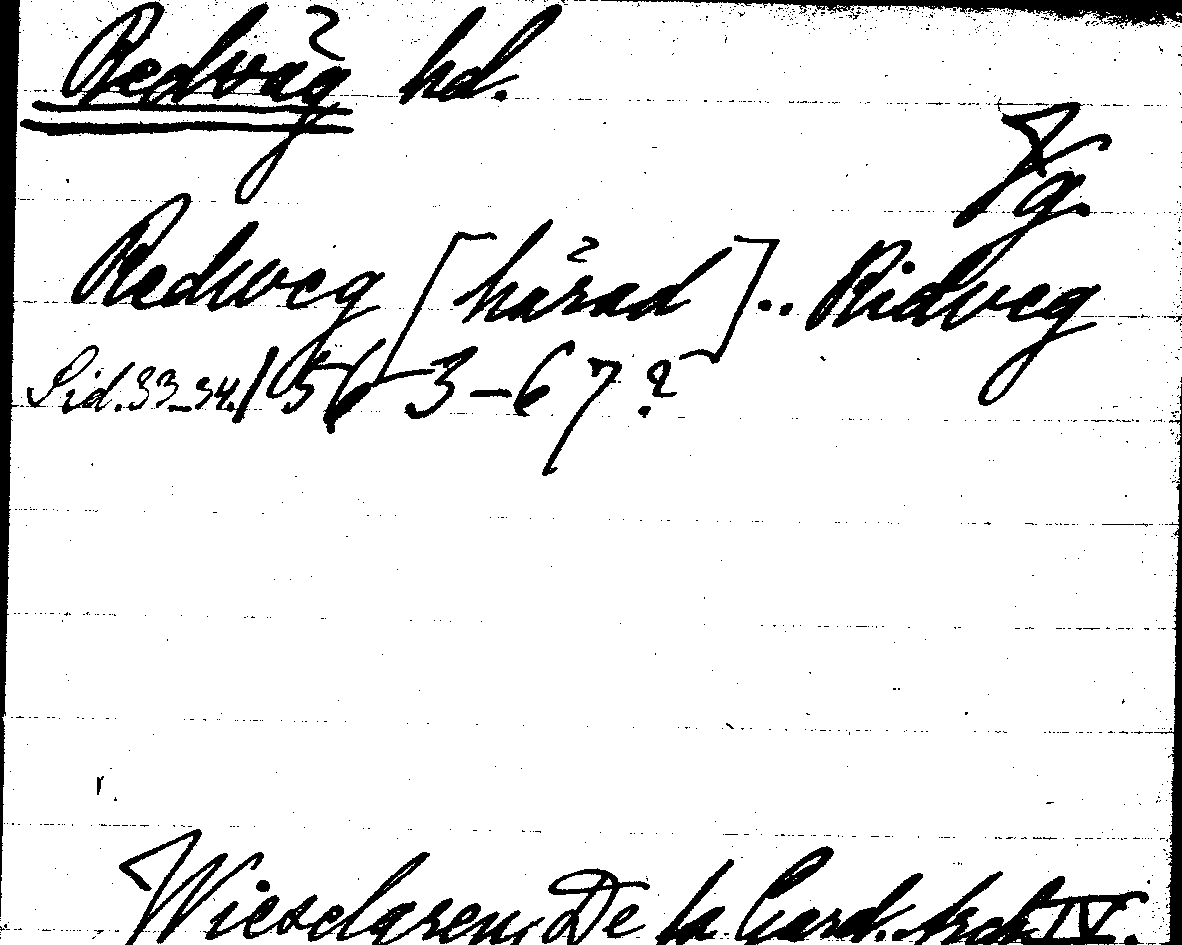 Redväg hd.
Vg.
Redweg [härad] .. Ridveg
Sid. 33-34. / 1563-67?
Wieselgren, De la Gard. Arch. IV.